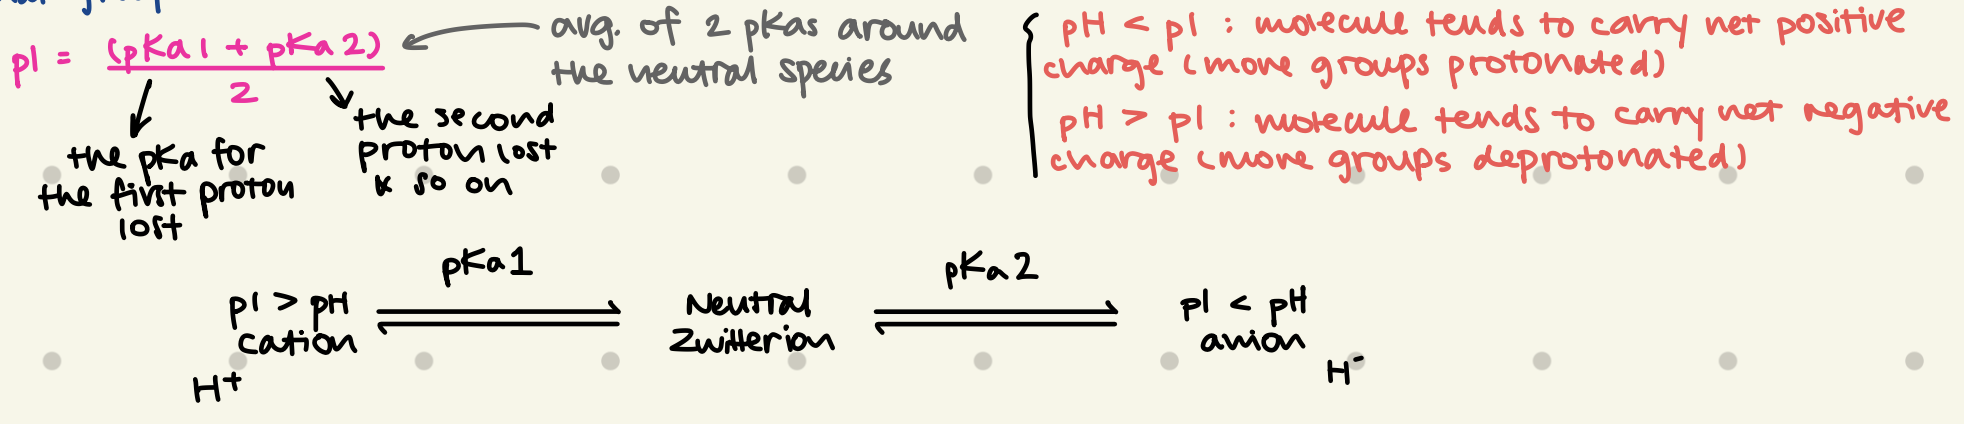 pI = (pKa1 + pKa2)
2
avg. of 2 pKas around
the neutral species
the pKa for
the first proton
lost
the second
proton lost
& so on
pH < pI : molecule tends to carry net positive
charge (more groups protonated)
pH > pI : molecule tends to carry net negative
charge (more groups deprotonated)
pKa1
pKa2
pI > pH
cation
H⁺
Neutral
Zwitterion
pI < pH
anion
H⁻